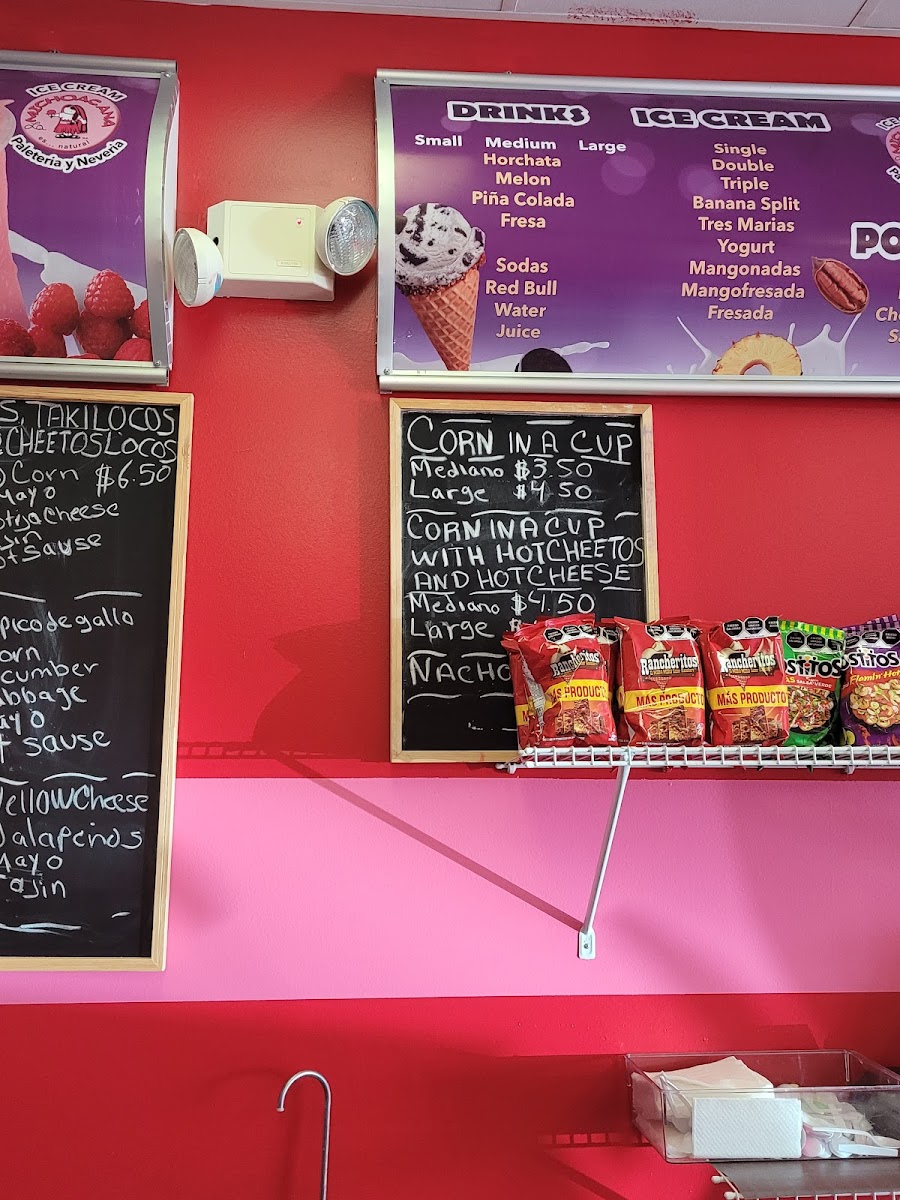 ICE CREAM
MICHOACANA
es... natural
Paletería y Nevería
DRINKS
Small Medium Large
Horchata
Melon
Piña Colada
Fresa
Sodas
Red Bull
Water
Juice
ICE CREAM
Single
Double
Triple
Banana Split
Tres Marias
Yogurt
Mangonadas
Mangofresada
Fresada
PO
S, TAKILOCOS
CHEETOSLOCOS
Corn $6.50
Mayo
Cheese
sause
picodegallo
orn
cumber
abbage
ayo
sause
YellowCheese
Jalapeinos
Mayo
Tajin
CORN IN A CUP
Mediano $3.50
Large $4.50
CORN IN A CUP
WITH HOTCHEETOS
AND HOTCHEESE
Mediano $4.50
Large
NACHO
Rancheritos
MÁS PRODUCTO
Rancheritos
MÁS PRODUCTO
Rancheritos
MÁS PRODUCTO
stitos
SALSA VERDE
OSTITOS
Flamin' Ho